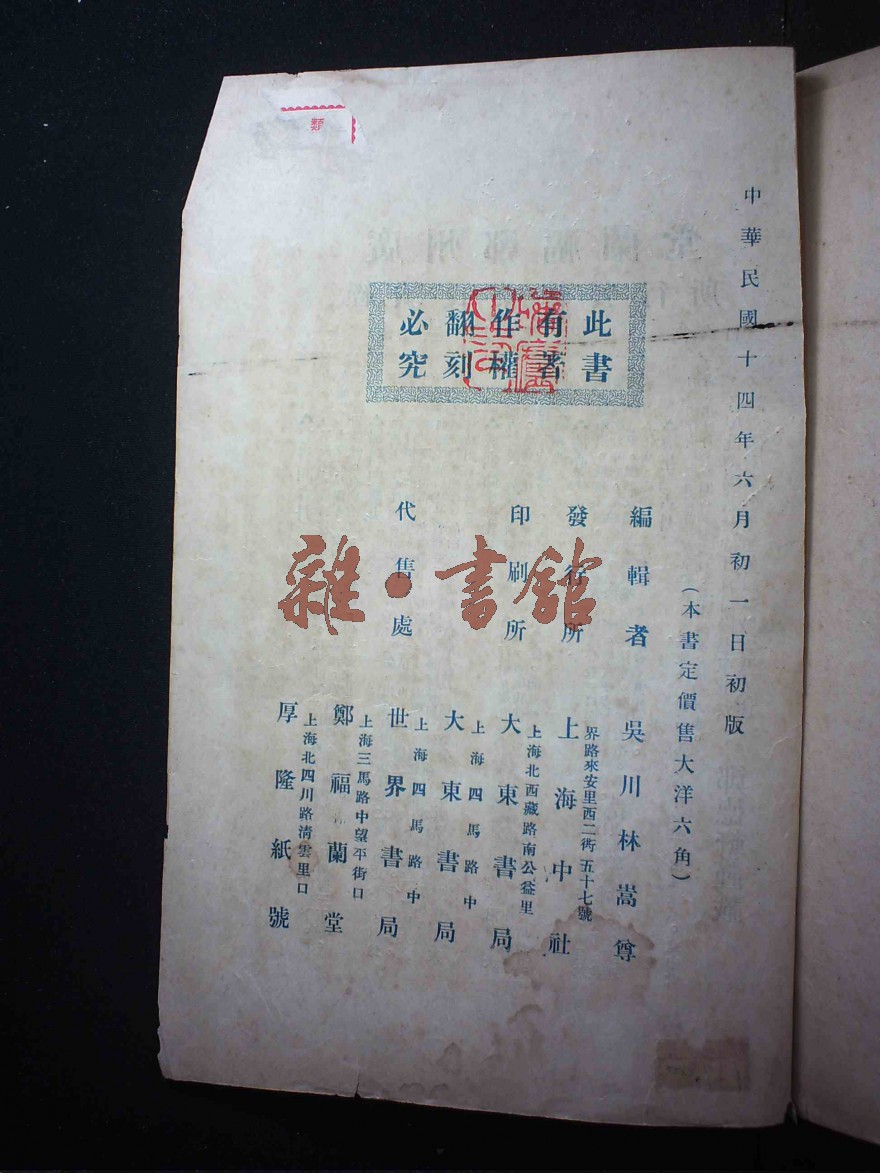 中華民國十四年六月初一日初版
(本書定價售大洋六角)
此書
有著
作權
翻刻
必究
編輯者 吳川林嵩尊
發行所 上海中社
界路來安里西二衖五十七號
印刷所 大東書局
上海北西藏路南公益里
代售處 大東書局
上海四馬路中
世界書局
上海四馬路中
鄭福蘭堂
上海三馬路中望平街口
厚隆紙號
上海北四川路清雲里口
雜·書館